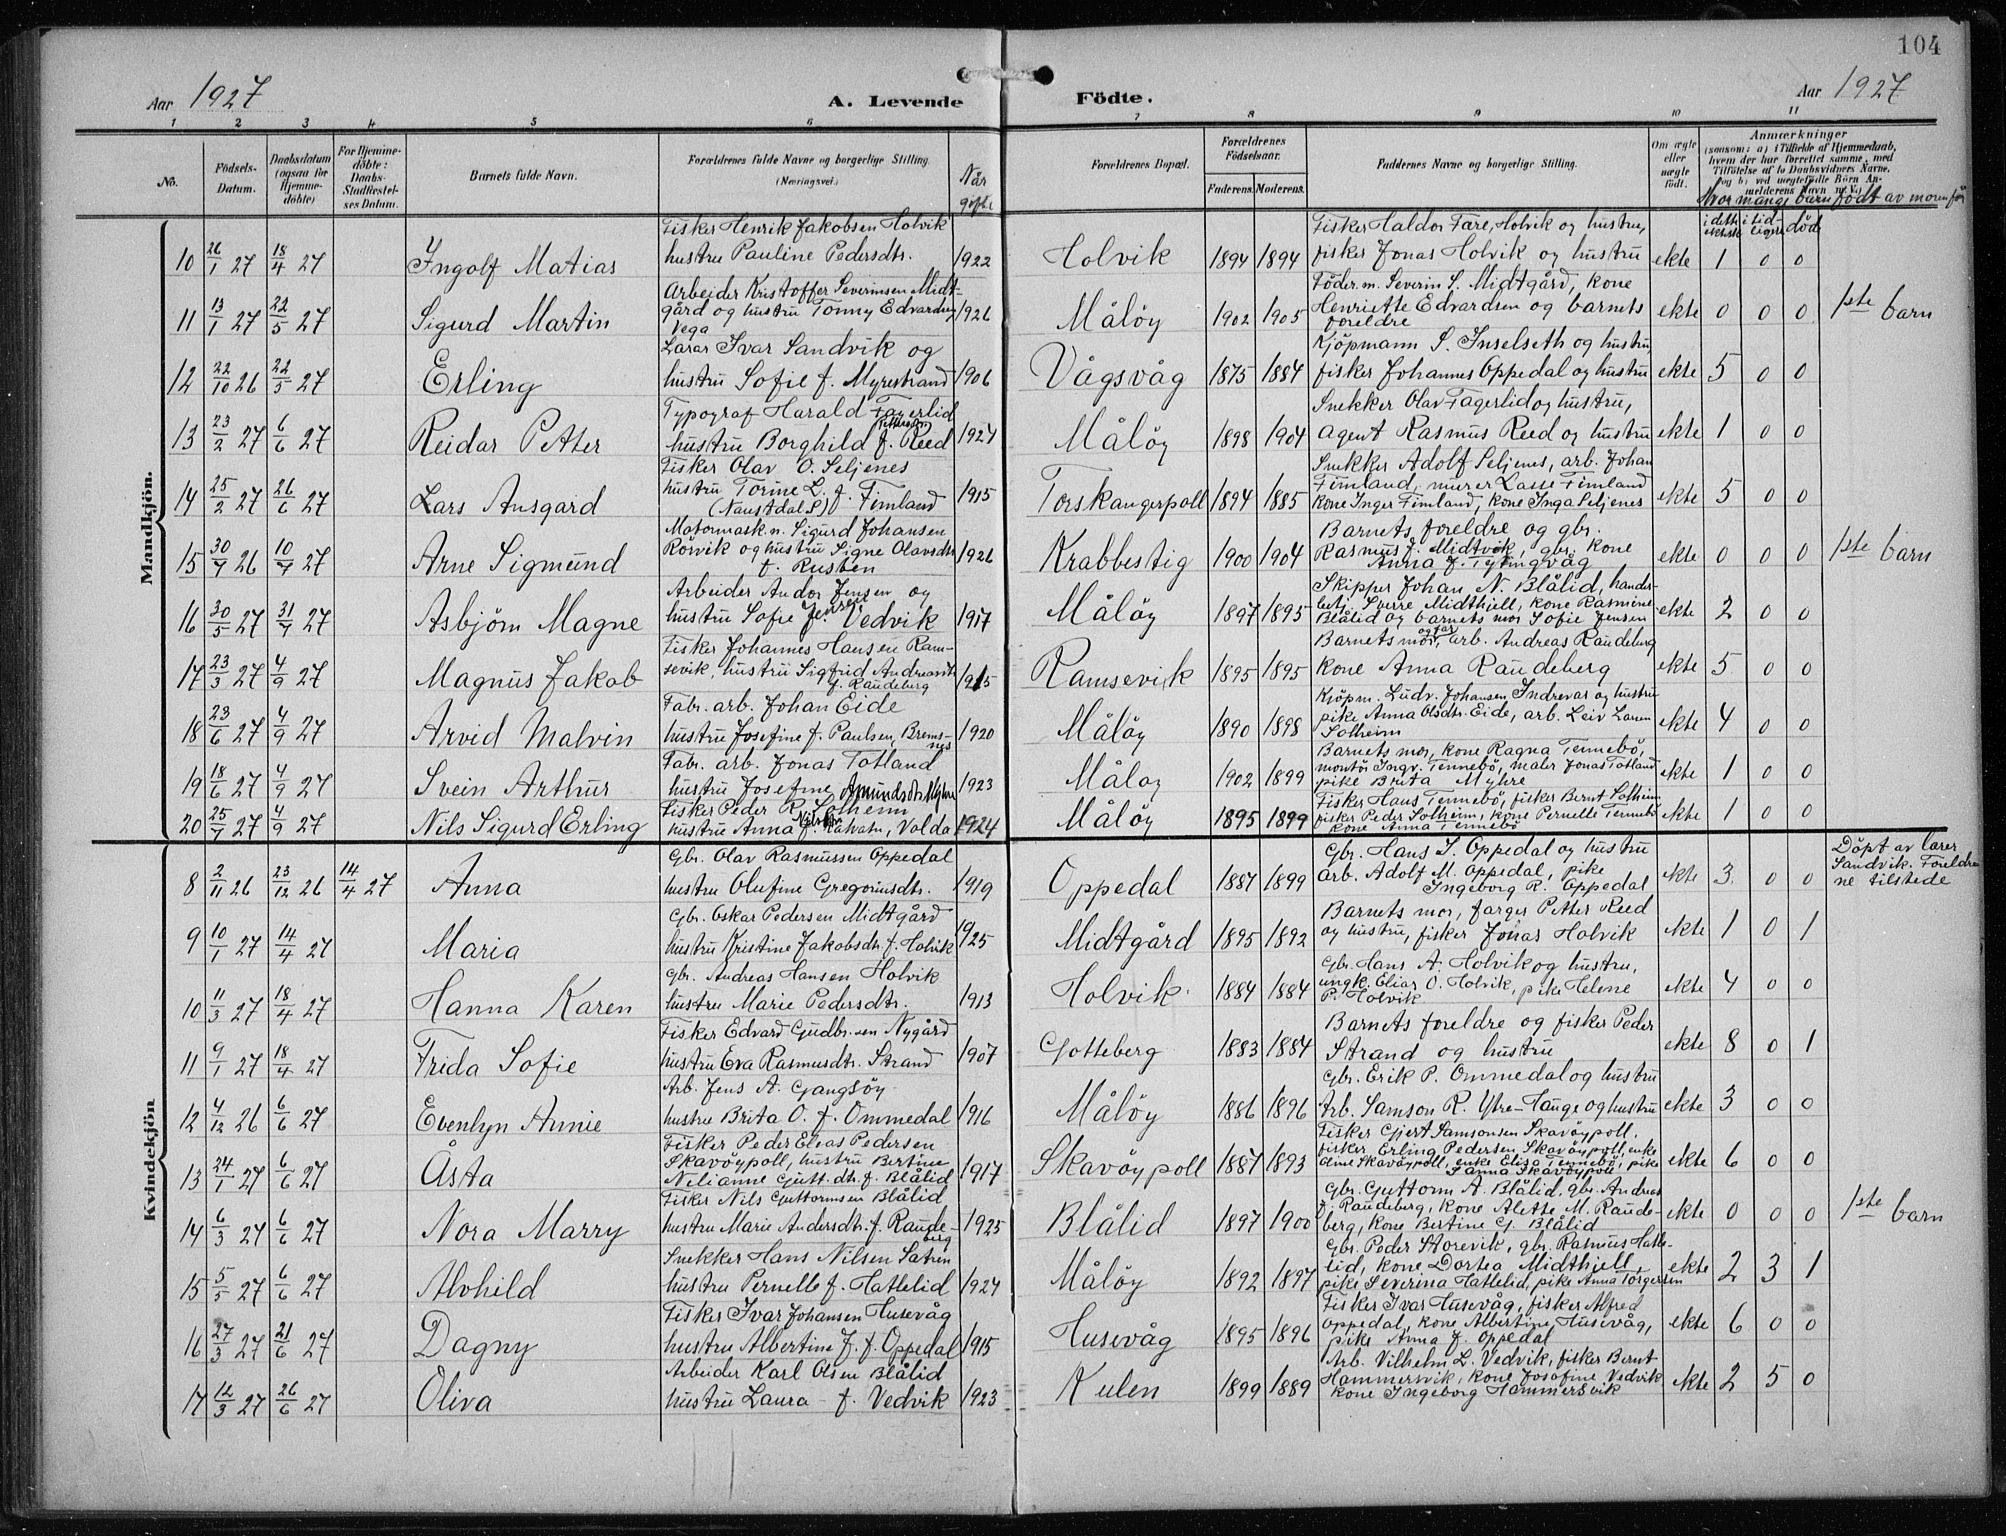 104
Aar 1927 A. Levende Födte. Aar 1927
1 2 3 4 5 6 7 8 9 10 11
No. Födsels-Datum. Daabsdatum (ogsaa for Hjemmedöbte) For Hjemmedöbte: Daabs-Stadfæstelses Datum. Barnets fulde Navn. Forældrenes fulde Navne og borgerlige Stilling. (Næringsvei.) Når gifte Forældrenes Bopæl. Forældrenes Födselsaar. Faderens. Moderens. Faddernes Navne og borgerlige Stilling. Om ægte eller uægte födt. Anmærkninger
(saasom: a) i Tilfælde af Hjemmedaab, hvem der har forrettet samme, med Tilföielse af to Daabsvidners Navne, og b) ved uægtefödte Börn Anmelderens Navn m. v.)
Hvor mange barn født av moren før
i dette ekteskap tidligere død
Mandkjön.
Fisker Henrik Jakobsen Holvik Fisker Haldor Fare, Holvik og hustru,
10 26/1 27 18/4 27 Ingolf Matias hustru Pauline Pedersdtr. 1922 Holvik 1894 1894 fisker Jonas Holvik og hustru ekte 1 0 0
Arbeider Kristoffer Severinsen Midt- Föder.m. Severin S. Midtgård, kone
11 13/1 27 22/5 27 Sigurd Martin gård og hustru Tonny Edvardsen 1926 Målöy 1902 1905 Henriette Edvardsen og barnets ekte 0 0 0 1ste barn
Vega foreldre
Lærar Ivar Sandvik og Kjöpmann S. Inselseth og hustru,
12 22/10 26 22/5 27 Erling hustru Sofie f. Myrestrand 1906 Vågsvåg 1875 1884 fisker Johannes Oppedal og hustru ekte 5 0 0
Typograf Harald Fagerlid Snekker Olav Fagerlid og hustru,
13 23/2 27 6/6 27 Reidar Petter hustru Borghild f. Reed 1924 Målöy 1898 1904 agent Rasmus Reed og hustru ekte 1 0 0
Fisker Olav O. Seljenes Snekker Adolf Seljenes, arb. Johan
14 25/2 27 26/6 27 Lars Ansgard hustru Torine L. f. Fimland 1915 Torskangerpoll 1894 1885 Fimland, murer Lasse Fimland ekte 5 0 0
(Naustdal S) kone Inger Fimland, kone Inga Seljenes
Motormask.n. Sigurd Johansen Barnets foreldre og gbr.
15 30/7 26 10/7 27 Arne Sigmund Rörvik og hustru Signe Olavsdtr. 1926 Krabbestig 1900 1904 Rasmus J. Midtvik, gbr. kone ekte 0 0 0 1ste barn
f. Rusten Anna J. Tytingvåg
Arbeider Andor Jensen og Skipper Johan N. Blålid, hander-
16 30/5 27 31/7 27 Asbjörn Magne hustru Sofie Jensen f. Vedvik 1917 Målöy 1897 1895 betj. Sverre Midthjell, kone Rasmine ekte 2 0 0
Blålid og barnets mor Sofie Jensen
Fisker Johannes Hansen Ram- Barnets mor, og far arb. Andreas Raudeberg
17 23/3 27 4/9 27 Magnus Jakob sevik, hustru Sigfrid Andreasdtr. 1915 Ramsevik 1895 1895 kone Anna Raudeberg ekte 5 0 0
f. Raudeberg
Fabr. arb. Johan Eide Kjöpm. Ludv. Johansen Indrevær og hustru
18 23/6 27 4/9 27 Arvid Malvin hustru Josefine f. Paulsen, Brems- 1920 Målöy 1890 1898 pike Anna Olsdtr. Eide, arb. Leiv Laren ekte 4 0 0
nes Solheim
Fabr. arb. Jonas Totland Barnets mor, kone Ragna Tennebö,
19 18/6 27 4/9 27 Svein Arthur hustru Josefine Amundsdtr. Myhre 1923 Målöy 1902 1899 montör Ingv. Tennebö, maler Jonas Totland ekte 1 0 0
pike Brita Myhre
Fisker Peder R. Solheim Fisker Hans Tennebö, fisker Bernt Solheim
20 25/7 27 4/9 27 Nils Sigurd Erling hustru Anna f. Volda 1924 Målöy 1895 1899 fisker Peder Solheim, kone Pernelle Tennebö ekte 1 0 0
kone Anna Tennebö
Kvindekjön
Gbr. Olav Rasmussen Oppedal Gbr. Hans S. Oppedal og hustru Döpt av lærer
8 2/11 26 23/12 26 14/4 27 Anna hustru Olufine Gregoriusdtr. 1919 Oppedal 1887 1899 arb. Adolf M. Oppedal, pike ekte 3 0 0 Sandvik. Foreldre
Ingeborg R. Oppedal ne tilstede
Gbr. Oskar Pedersen Midtgård Barnets mor, farger Petter Reed
9 10/1 27 14/4 27 Maria hustru Kristine Jakobsdtr. f. Holvik 1925 Midtgård 1895 1892 og hustru, fisker Jonas Holvik ekte 1 0 1
Gbr. Andreas Hansen Holvik Gbr. Hans A. Holvik og hustru,
10 11/3 27 18/4 27 Hanna Karen hustru Marie Pedersdtr. 1913 Holvik 1884 1884 ungk. Elias O. Holvik, pike Helene ekte 4 0 0
P. Holvik
Fisker Edvard Gudbr.sen Nygård Barnets foreldre og fisker Peder
11 9/1 27 18/4 27 Frida Sofie hustru Eva Rasmusdtr. Strand 1907 Gotteberg 1883 1884 Strand og hustru ekte 8 0 1
Arb. Jens A. Gangsöy Gbr. Erik P. Ommedal og hustru
12 4/12 26 6/6 27 Evenlyn Annie hustru Brita O. f. Ommedal 1916 Målöy 1886 1896 Arb. Samson R. Ytre-Hauge og hustru ekte 3 0 0
Fisker Peder Eleas Pedersen Fisker Gjert Samsonsen Skavöypoll,
13 24/1 27 6/6 27 Åsta Skavöypoll, hustru Bertine 1917 Skavöypoll 1887 1893 fisker Erling Pedersen Skavöypoll, enke ekte 6 0 0
Nilianne Gutt.dtr. f. Blålid dine Skavöypoll, enke Elisa Tennebö, pike Sanna Skavöypoll
Fisker Nils Guttormsen Blålid Gbr. Guttorm A. Blålid, gbr. Andreas
14 6/3 27 6/6 27 Nora Marry hustru Marie Andersdtr. f. Raude- 1925 Blålid 1897 1900 J. Raudeberg, kone Alette M. Raude- ekte 0 0 0 1ste barn
berg berg, kone Bertine G. Blålid
Snekker Hans Nilsen Satren Gbr. Peder Storevik, gbr. Rasmus Hatle-
15 5/5 27 6/6 27 Alvhild hustru Pernelle f. Hatlelid 1924 Målöy 1892 1897 lid, kone Dortea Midthjell, ekte 2 3 1
pike Severina Hatlelid, pike Anna Torgersen
Fisker Ivar Johansen Husevåg Fisker Ivar Husevåg, fisker Alfred
16 27/3 27 21/6 27 Dagny hustru Albertine J. f. Oppedal 1915 Husevåg 1895 1896 Oppedal, kone Albertine Husevåg, ekte 6 0 0
pike Anna J. Oppedal
Arbeider Karl Olsen Blålid Arb. Vilhelm L. Vedvik, fisker Bernt
17 12/3 27 26/6 27 Oliva hustru Laura f. Vedvik 1923 Kulen 1899 1889 Hammersvik, kone Josefine Vedvik ekte 2 5 0
kone Ingeborg Hammersvik